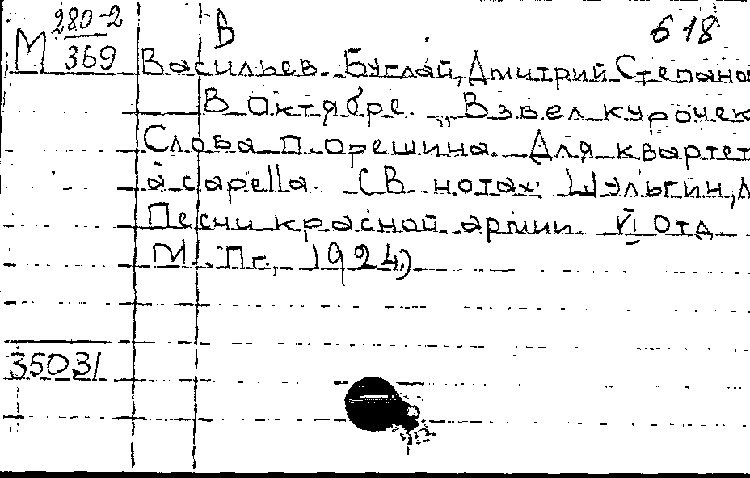 280-2
М 369
В
618
Васильев-Буглай, Дмитрий Степано
В Октябре. „Взвел курочек
Слова П. Орешина. Для квартет
a capella. (В нотах: Шульгин, Л
Песни красной армии. VI отд
М. Пг., 1924)
35031